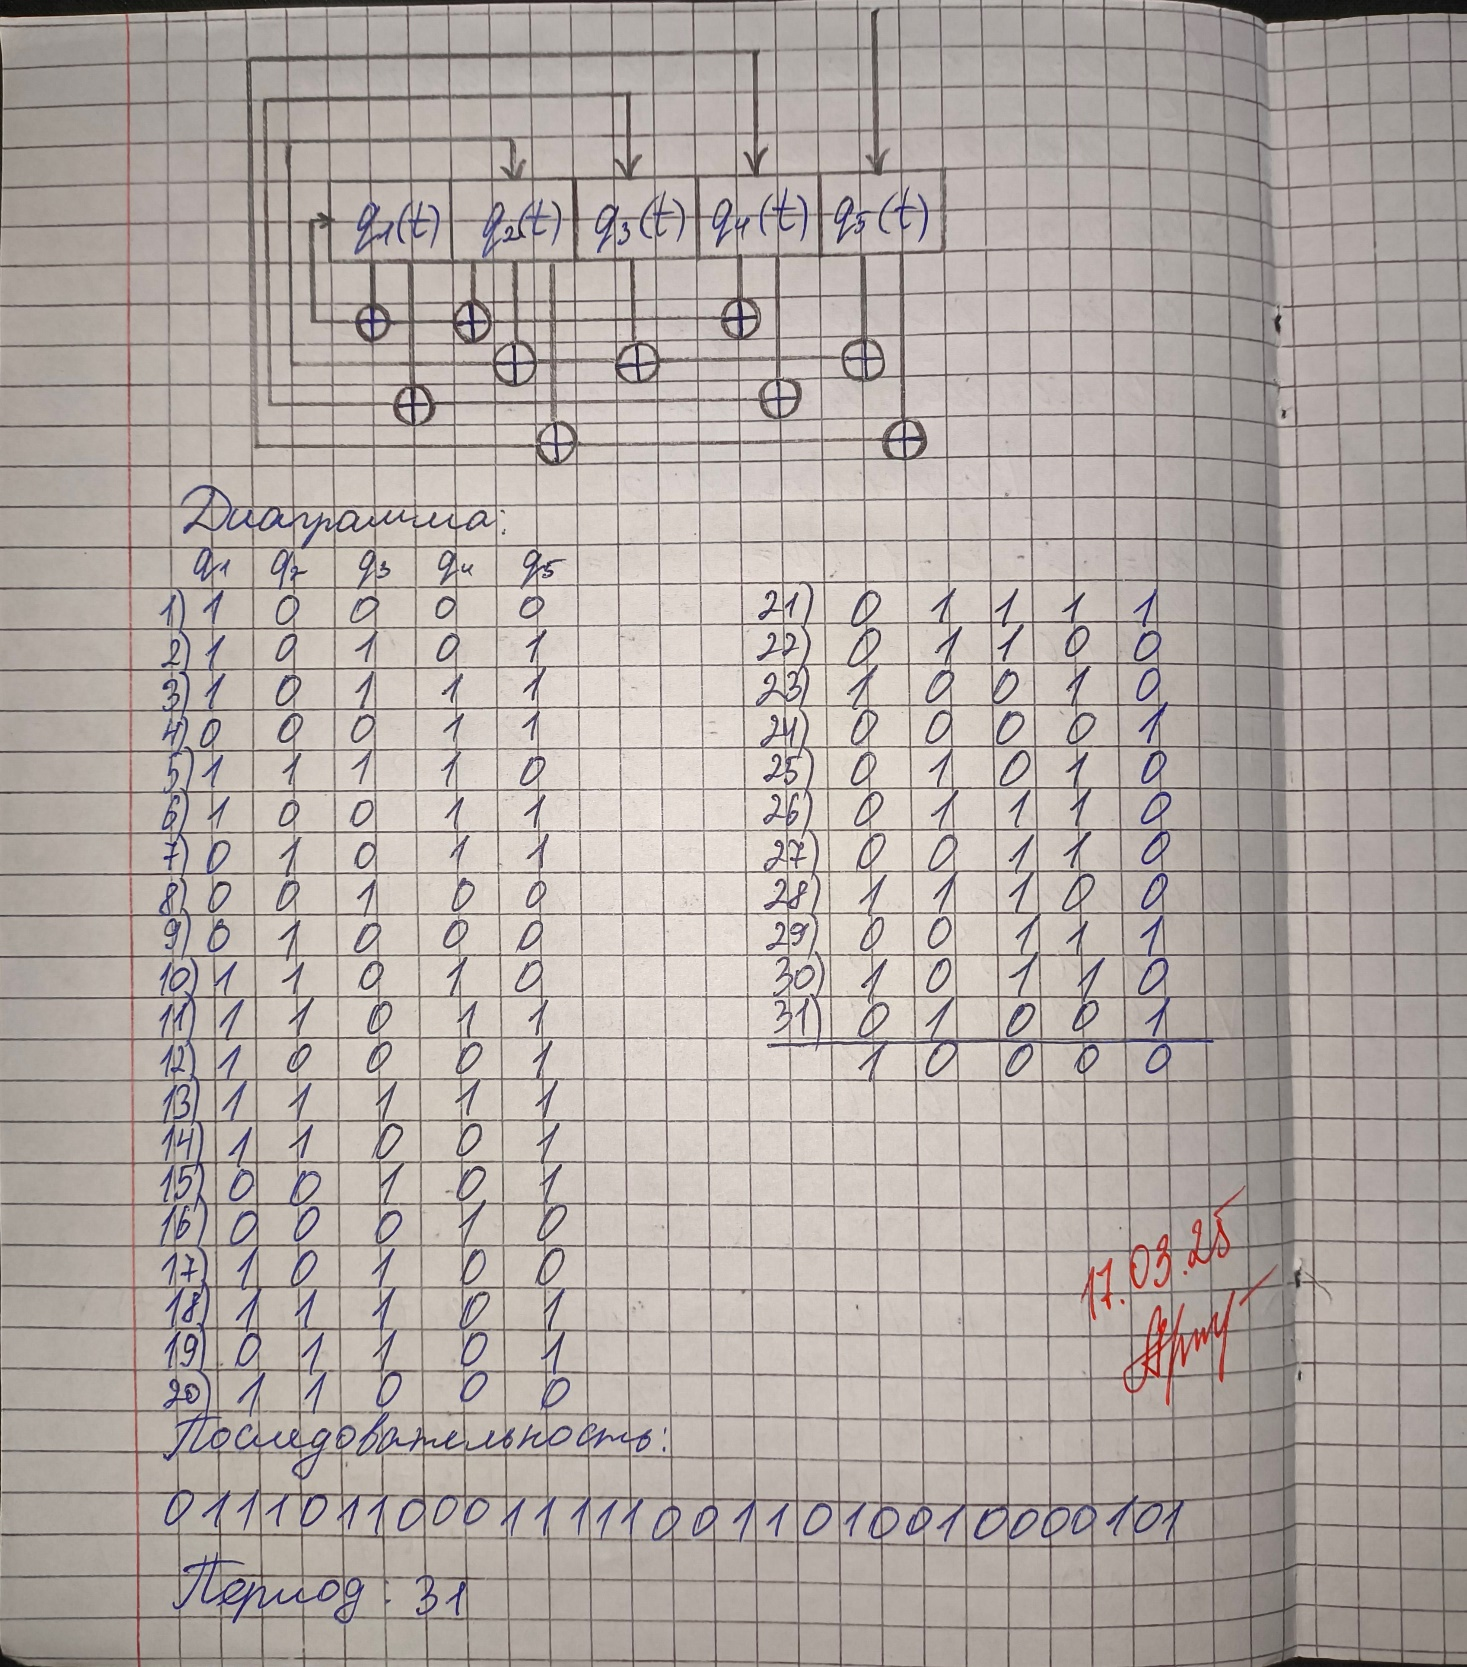 q1(t) q2(t) q3(t) q4(t) q5(t)
Диаграмма:
q1 q2 q3 q4 q5
1) 1 0 0 0 0
2) 1 0 1 0 1
3) 1 0 1 1 1
4) 0 0 0 1 1
5) 1 1 1 1 0
6) 1 0 0 1 1
7) 0 1 0 1 1
8) 0 0 1 0 0
9) 0 1 0 0 0
10) 1 1 0 1 0
11) 1 1 0 1 1
12) 1 0 0 0 1
13) 1 1 1 1 1
14) 1 1 0 0 1
15) 0 0 1 0 1
16) 0 0 0 1 0
17) 1 0 1 0 0
18) 1 1 1 0 1
19) 0 1 1 0 1
20) 1 1 0 0 0
21) 0 1 1 1 1
22) 0 1 1 0 0
23) 1 0 0 1 0
24) 0 0 0 0 1
25) 0 1 0 1 0
26) 0 1 1 1 0
27) 0 0 1 1 0
28) 1 1 1 0 0
29) 0 0 1 1 1
30) 1 0 1 1 0
31) 0 1 0 0 1
1 0 0 0 0
17.03.25
Последовательность:
0111011000111110011010010000101
Период: 31